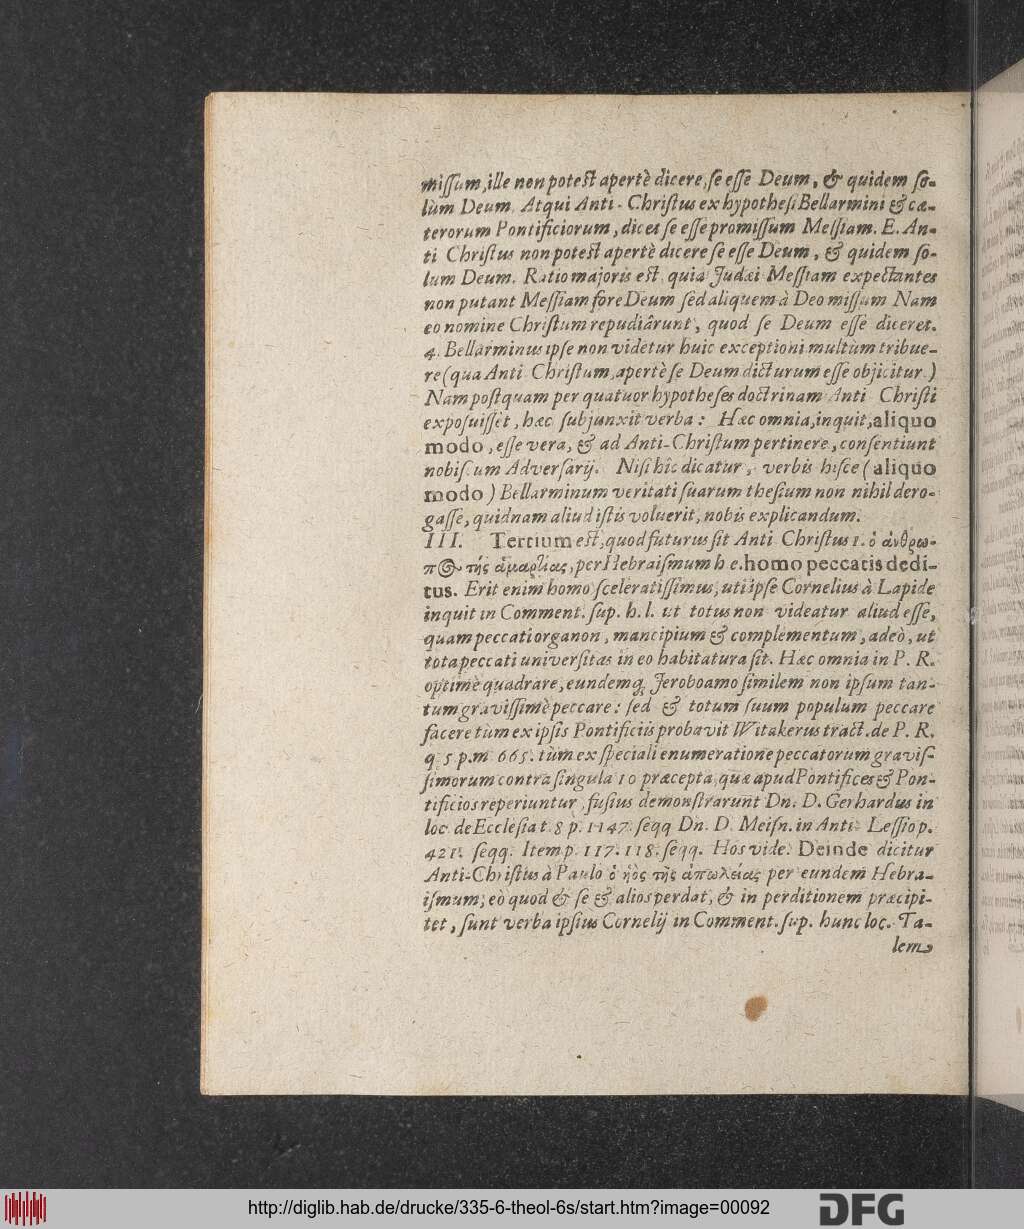 miſſum, ille non poteſt apertè dicere, ſe eſſe Deum, & quidem ſo-
lùm Deum. Atqui Anti-Chriſtus ex hypotheſi Bellarmini & cæ-
terorum Pontificiorum, dicet ſe eſſe promiſſum Meſſiam. E. An-
ti Chriſtus non poteſt apertè dicere ſe eſſe Deum, & quidem ſo-
lum Deum. Ratio majoris eſt, quia Judæi Meſſiam expectantes
non putant Meſſiam fore Deum ſed aliquem à Deo miſſum Nam
eo nomine Chriſtum repudiârunt, quod ſe Deum eſſe diceret.
4. Bellarminus ipſe non videtur huic exceptioni multùm tribue-
re (qua Anti Chriſtum, apertè ſe Deum dicturum eſſe objicitur)
Nam poſtquam per quatuor hypotheſes doctrinam Anti Chriſti
expoſuiſſet, hæc ſubjunxit verba: Hæc omnia, inquit, aliquo
modo, eſſe vera, & ad Anti-Chriſtum pertinere, conſentiunt
nobiſcum Adverſarij. Niſi hîc dicatur, verbis hiſce (aliquo
modo) Bellarminum veritati ſuarum theſium non nihil dero-
gaſſe, quidnam aliud iſtis voluerit, nobis explicandum.
III. Tertium eſt, quod futurus ſit Anti Chriſtus 1. ὁ ἄνθρω-
π&#8855; τῆς ἁμαρτίας, per Hebraiſmum h e. homo peccatis dedi-
tus. Erit enim homo ſceleratiſſimus, uti ipſe Cornelius à Lapide
inquit in Comment. ſup. h. l. ut totus non videatur aliud eſſe,
quam peccati organon, mancipium & complementum, adeò, ut
tota peccati univerſitas in eo habitatura ſit. Hæc omnia in P. R.
optimè quadrare, eundemq; Jeroboamo ſimilem non ipſum tan-
tum graviſſimè peccare: ſed & totum ſuum populum peccare
facere tùm ex ipſis Pontificiis probavit Witakerus tract. de P. R.
q. 5 p. m 665. tùm ex ſpeciali enumeratione peccatorum graviſ-
ſimorum contra ſingula 10 præcepta, quæ apud Pontifices & Pon-
tificios reperiuntur, fuſius demonſtrarunt Dn. D. Gerhardus in
loc de Eccleſia t. 8 p. 1147. ſeqq Dn. D. Meiſn. in Anti-Leſſio p.
421. ſeqq. Item p. 117. 118. ſeqq. Hos vide. Deinde dicitur
Anti-Chriſtus à Paulo ὁ ἡὸς τῆς ἀπωλείας per eundem Hebra-
iſmum, eò quod & ſe & alios perdat, & in perditionem præcipi-
tet, ſunt verba ipſius Cornelij in Comment. ſup. hunc loc. Ta-
lem
http://diglib.hab.de/drucke/335-6-theol-6s/start.htm?image=00092
DFG